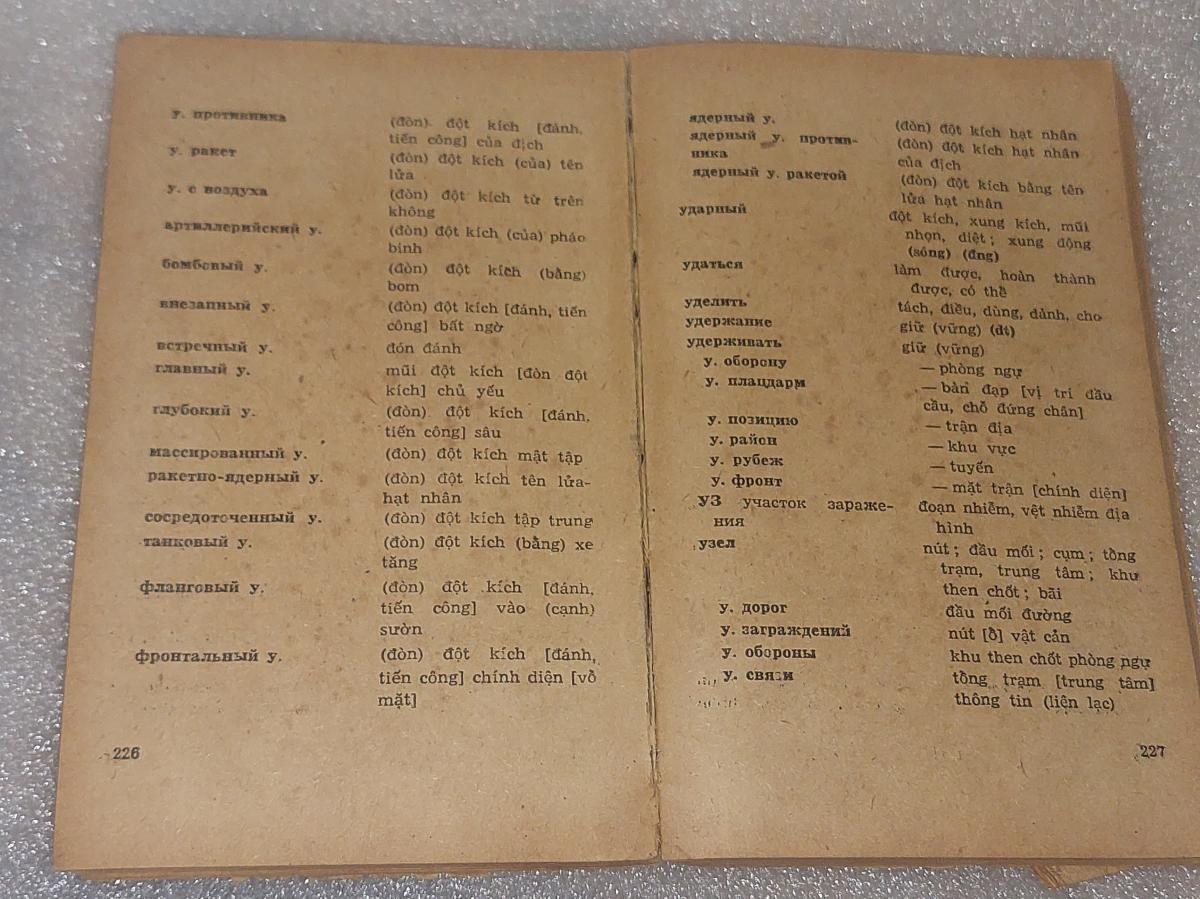 у. противника (đòn) đột kích [đánh,
tiến công] của địch
у. ракет (đòn) đột kích (của) tên
lửa
у. с воздуха (đòn) đột kích từ trên
không
артиллерийский у. (đòn) đột kích (của) pháo
binh
бомбовый у. (đòn) đột kích (bằng)
bom
внезапный у. (đòn) đột kích [đánh, tiến
công] bất ngờ
встречный у. đón đánh
главный у. mũi đột kích [đòn đột
kích] chủ yếu
глубокий у. (đòn) đột kích [đánh,
tiến công] sâu
массированный у. (đòn) đột kích mật tập
ракетно-ядерный у. (đòn) đột kích tên lửa-
hạt nhân
сосредоточенный у. (đòn) đột kích tập trung
танковый у. (đòn) đột kích (bằng) xe
tăng
фланговый у. (đòn) đột kích [đánh,
tiến công] vào (cạnh)
sườn
фронтальный у. (đòn) đột kích [đánh,
tiến công] chính diện [vỗ
mặt]
226
ядерный у. (đòn) đột kích hạt nhân
ядерный у. против- (đòn) đột kích hạt nhân
ника của địch
ядерный у. ракетой (đòn) đột kích bằng tên
lửa hạt nhân
ударный đột kích, xung kích, mũi
nhọn, diệt; xung động
(sóng) (đng)
удаться làm được, hoàn thành
được, có thể
уделить tách, điều, dùng, dành, cho
удержание giữ (vững) (dt)
удерживать giữ (vững)
у. оборону — phòng ngự
у. плацдарм — bàn đạp [vị trí đầu
cầu, chỗ đứng chân]
у. позицию — trận địa
у. район — khu vực
у. рубеж — tuyến
у. фронт — mặt trận [chính diện]
УЗ участок зараже- đoạn nhiễm, vệt nhiễm địa
ния hình
узел nút; đầu mối; cụm; tổng
trạm, trung tâm; khu
then chốt; bãi
у. дорог đầu mối đường
у. заграждений nút [ổ] vật cản
у. обороны khu then chốt phòng ngự
у. связи tổng trạm [trung tâm]
thông tin (liện lạc)
227